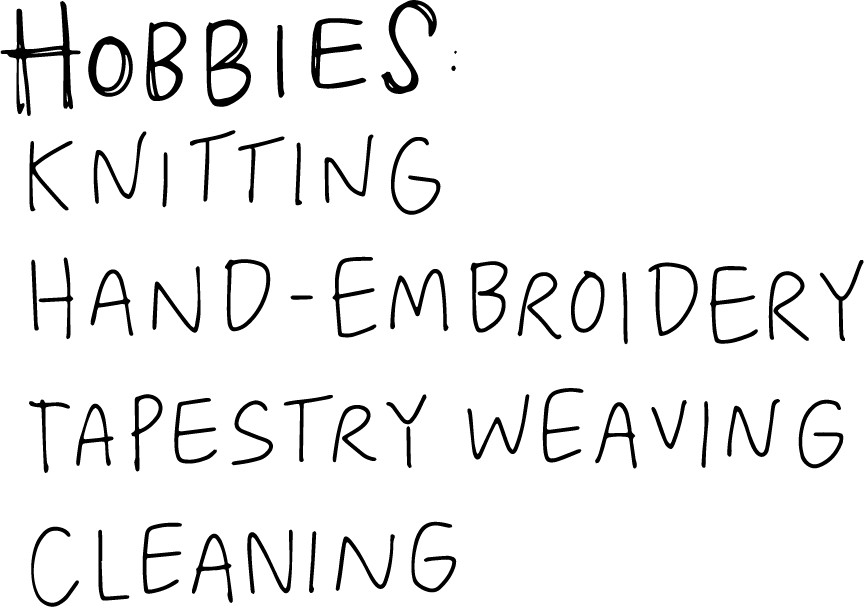 HOBBIES:
KNITTING
HAND-EMBROIDERY
TAPESTRY WEAVING
CLEANING